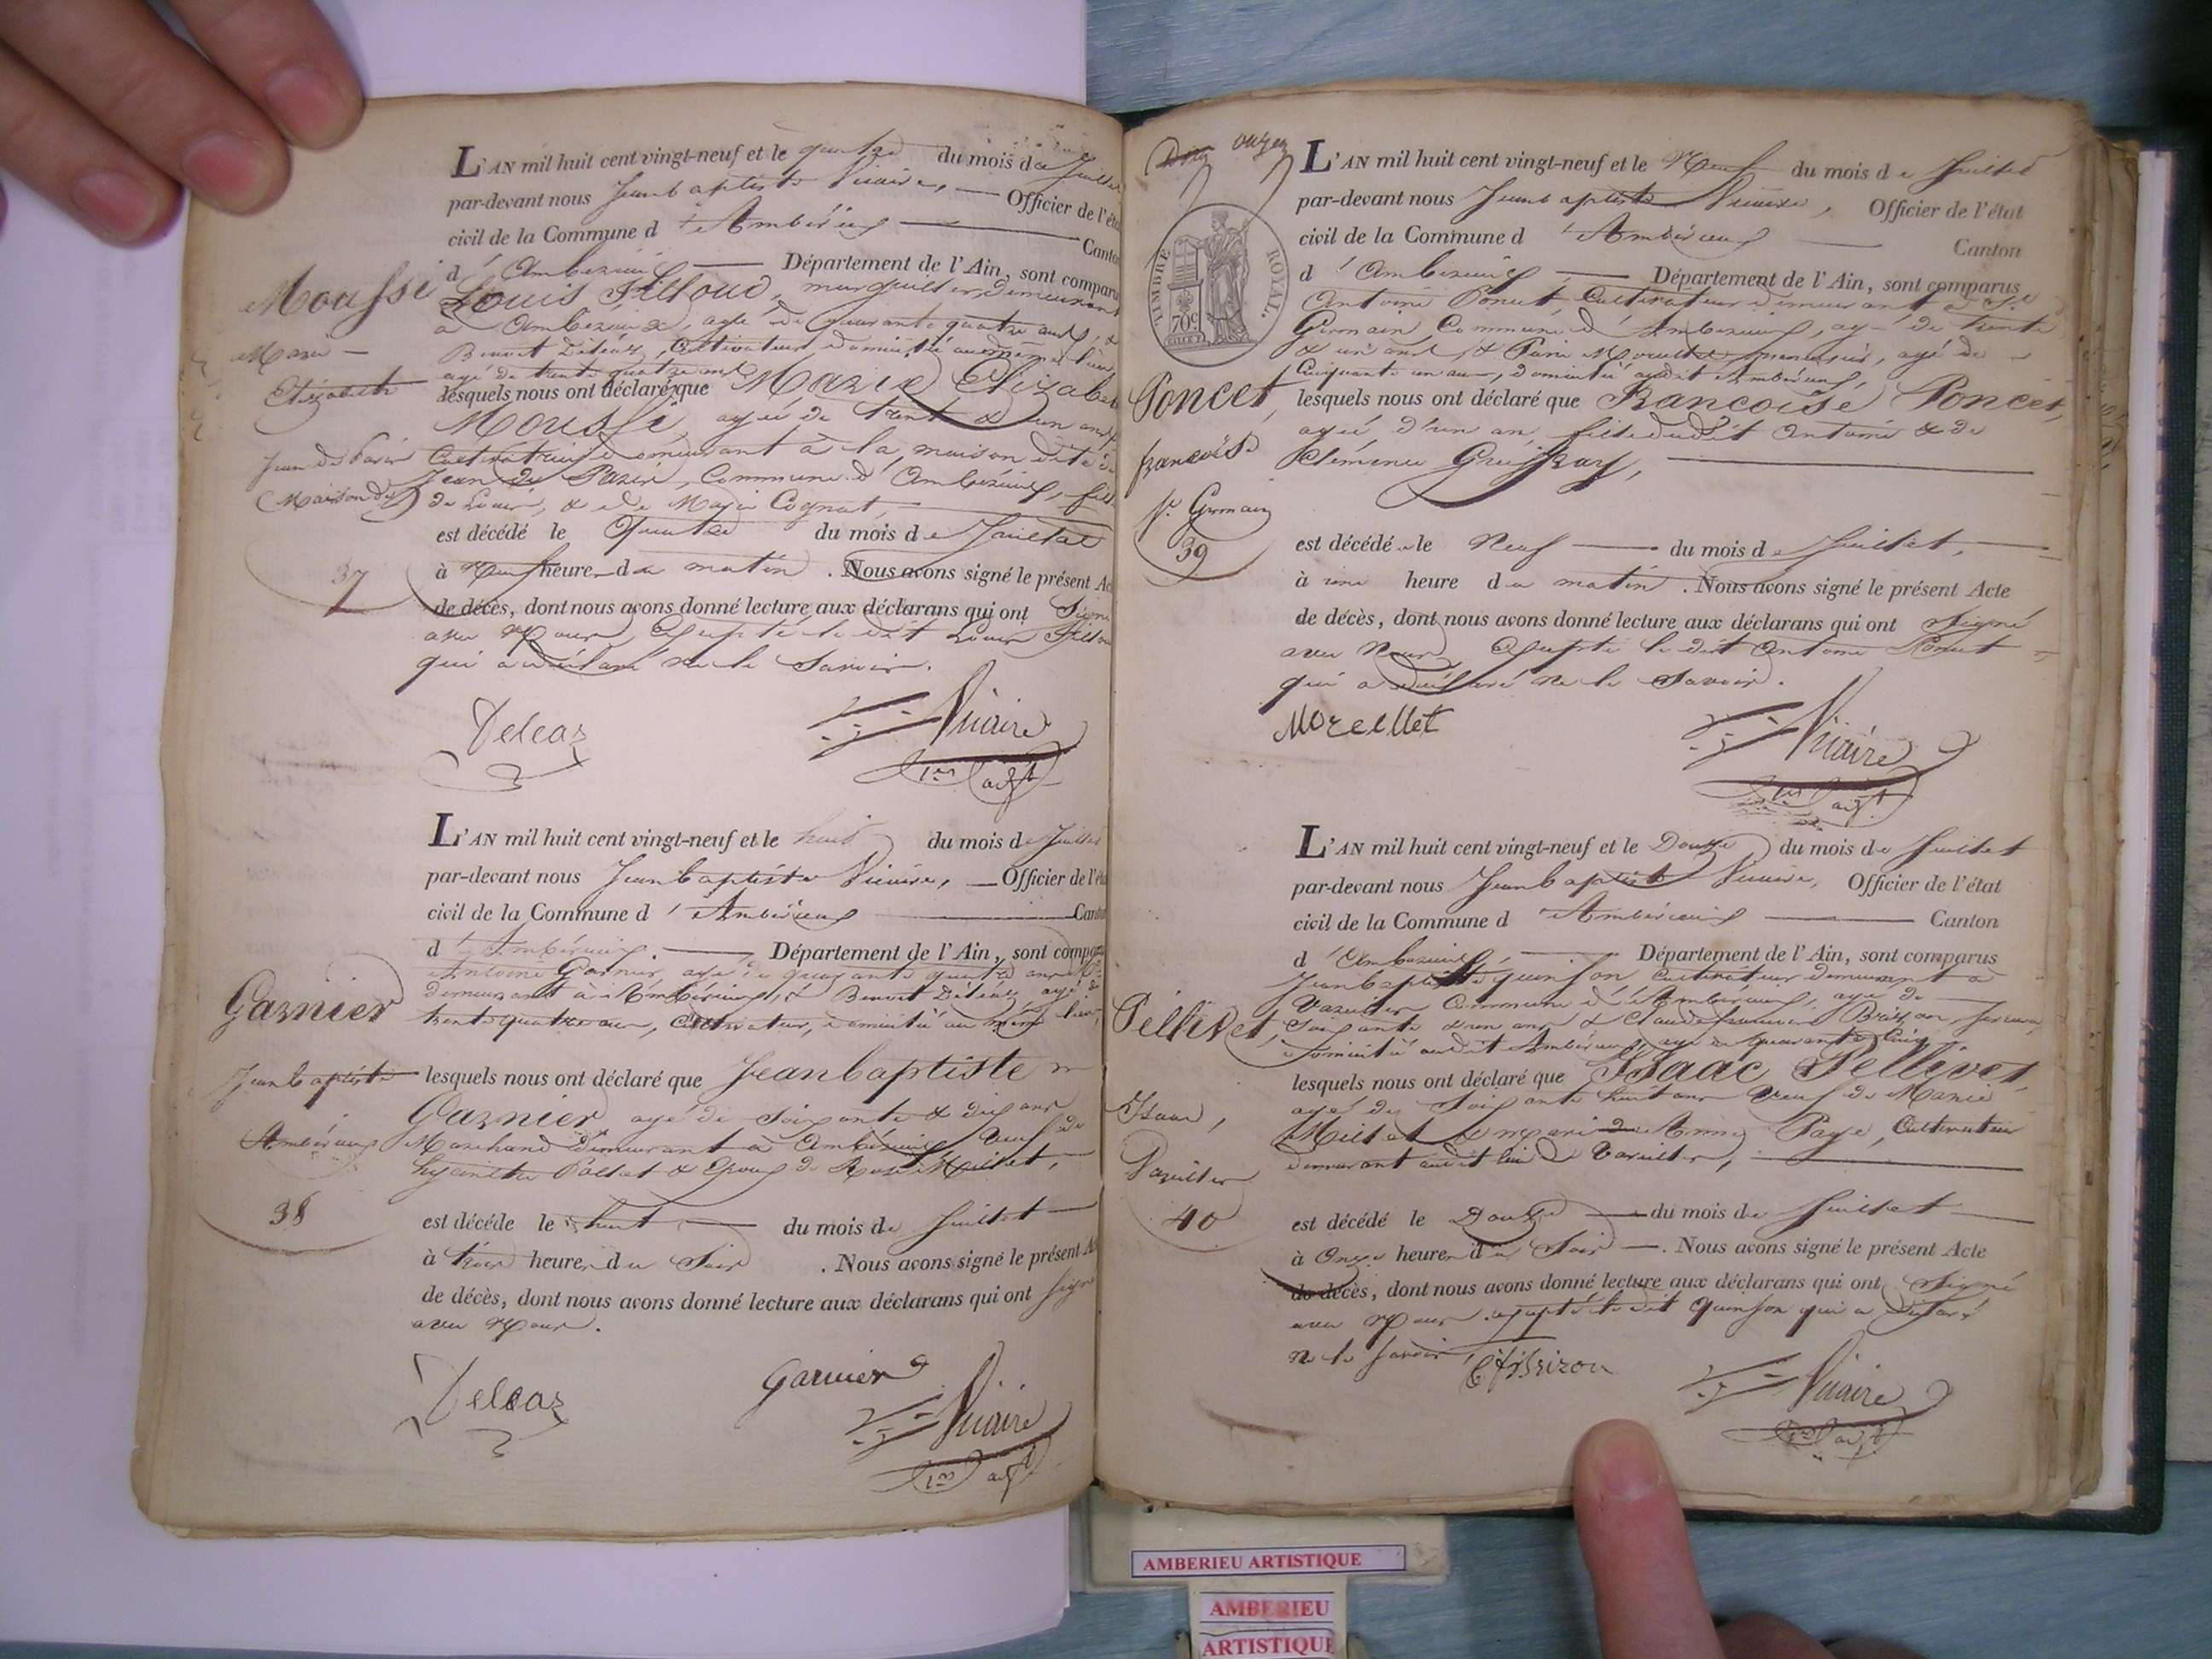 L'AN mil huit cent vingt-neuf et le quatre du mois de Juillet
par-devant nous Jean baptiste Vicaire, Officier de l'éta
civil de la Commune d'Ambérieux Canton
d'Ambérieux Département de l'Ain, sont comparu
Mousse Louis Filloud, demeurant
à Ambérieux, agé de quarante quatre ans, &
Marie
Benoit Déléaz, Cultivateur domicilié au même lieu,
agé de trente quatre ans
Elizabeth
lesquels nous ont déclaré que Marie Elizabet
Mousse, agée de trente & un ans
Cultivatrice demeurant à la maison dite de
Jean de Paris, Commune d'Ambérieux, fille
(Maison de)
de Louis, & de Cognat,
est décédé le Quatre du mois de Juillet
37
à neuf heures du matin. Nous avons signé le présent Ac
de décès, dont nous avons donné lecture aux déclarans qui ont Signé
avec Nous, Excepté le dit Louis Fillou
qui a déclaré ne le savoir.
Deleaz
Vicaire
1er adjt
L'AN mil huit cent vingt-neuf et le huit du mois de Juillet
par-devant nous Jean baptiste Vicaire, Officier de l'éta
civil de la Commune d'Ambérieux Canton
d'Ambérieux. Département de l'Ain, sont compar
Antoine Garnier, agé de quarante quatre ans
demeurant à Ambérieux, & Benoit Déléaz agé de
Garnier
trente quatre ans, Cultivateur, domicilié au même lieu,
Jean baptiste
lesquels nous ont déclaré que Jean baptiste
Garnier, agé de soixante & dix ans
Ambérieux
Marchand demeurant à Ambérieux Veuf de
& Epoux de Rose Millet,
38
est décéde le huit du mois de Juillet
à trois heures du Soir. Nous avons signé le présent A
de décès, dont nous avons donné lecture aux déclarans qui ont signé
avec Nous.
Deleaz
Garnier
Vicaire
1er adjt
onzen
L'AN mil huit cent vingt-neuf et le Neuf du mois de Juillet
par-devant nous Jean baptiste Vicaire, Officier de l'état
civil de la Commune d'Ambérieux Canton
d'Ambérieux Département de l'Ain, sont comparus
TIMBRE ROYAL
70c
Antoine Poncet, Cultivateur demeurant à St
Germain, Commune d'Ambérieux, agé de trente
& un ans, & menuisier, agé de
Cinquante un ans, domicilié audit Ambérieux,
Poncet,
lesquels nous ont déclaré que Francoise Poncet,
agée d'un an, fille dudit Antoine & de
françoise
Clémence
St Germain
39
est décédé le Neuf du mois de Juillet,
à une heure du matin. Nous avons signé le présent Acte
de décès, dont nous avons donné lecture aux déclarans qui ont Signé
avec Nous, Excepté le dit Antoine Poncet
qui a déclaré ne le Savoir.
Morellet
Vicaire
1er adjt
L'AN mil huit cent vingt-neuf et le Douze du mois de Juillet
par-devant nous Jean baptiste Vicaire, Officier de l'état
civil de la Commune d'Ambérieux Canton
d'Ambérieux, Département de l'Ain, sont comparus
Jean baptiste quinson, Cultivateur demeurant à
Vareilles Commune d'Ambérieux, agé de
Pellivet,
Soixante & un ans & Claude
domicilié audit Ambérieux, agé de quarante cinq
lesquels nous ont déclaré que Isaac Pellivet,
agé de Soixante huit ans Veuf de Marie
Isaac,
Millet & mari de Anne Page, Cultivateur
demeurant audit lieu de Vareilles,
Vareilles
40
est décédé le Douze du mois de Juillet
à Onze heures du Soir. Nous avons signé le présent Acte
de décès, dont nous avons donné lecture aux déclarans qui ont Signé
avec Nous. excepté le dit Quinson qui a déclaré
ne le Savoir,
Vicaire
1er adjt
AMBERIEU ARTISTIQUE
AMBERIEU
ARTISTIQUE